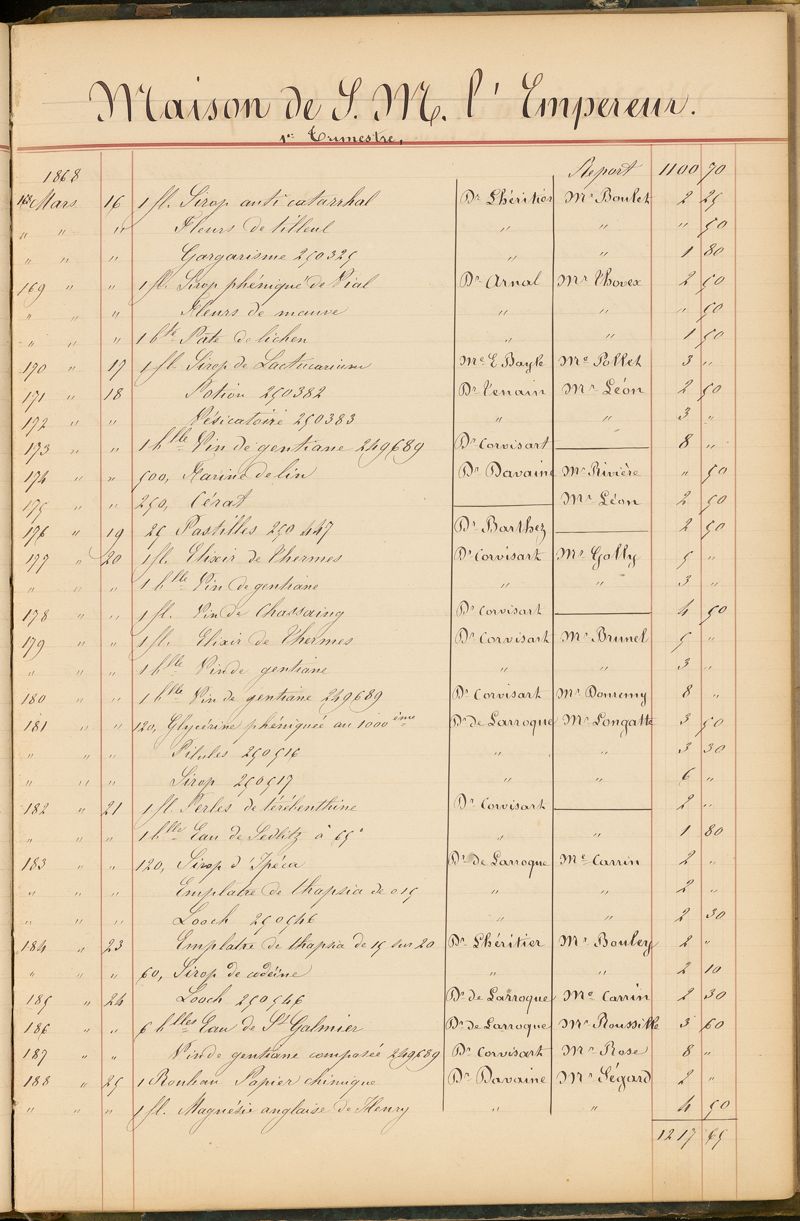 Maison de S. M. l' Empereur.
1er Trimestre,
1868 Report 1100 70
168 Mars 16 1 fl. Sirop anti catarrhal Dr Lhéritier Mr Boulet 2 25
" " " Fleurs de tilleul " " " 50
" " " Gargarisme 250325 " " 1 80
169 " " 1 fl. Sirop phéniqué de Vial Dr Arnal Mr Thovex 2 50
" " " Fleurs de mauve " " " 50
" " " 1 bte Pate de lichen " " 1 50
170 " 17 1 fl. Sirop de Lactucarium Me E Bayle Me Pollet 3 "
171 " 18 Potion 250382 Dr Tenain Mr Léon 2 50
172 " " Vésicatoire 250383 " " 3 "
173 " " 1 blle Vin de gentiane 249689 Dr Corvisart 8 "
174 " " 500, Farine de lin Dr Davaine Me Rivière " 50
175 " " 250, Cérat Mr Léon 2 50
176 " 19 25 Pastilles 250447 Dr Barthez 2 50
177 " 20 1 fl. Elixir de Thermes Dr Corvisart Mr Golly 5 "
" " " 1 blle Vin de gentiane " " 3 "
178 " " 1 fl. Vin de Chassaing Dr Corvisart 4 50
179 " " 1 fl. Elixir de Thermes Dr Corvisart Mr Brunel 5 "
" " " 1 blle Vin de gentiane " " 3 "
180 " " 1 blle Vin de gentiane 249689 Dr Corvisart Mr Domremy 8 "
181 " " 120, Glycérine phéniquée au 1000ème Dr de Larroque Mr Longatte 3 50
" " " Pilules 250516 " " 3 30
" " " Sirop 250517 " " 6 "
182 " 21 1 fl. Perles de térébenthine Dr Corvisart 2 "
" " " 1 blle Eau de Sedlitz à 65° " " 1 80
183 " " 120, Sirop d'Ipéca Dr de Larroque Me Carrin 2 "
" " " Emplatre de thapsia de 015 " " 2 "
" " " Looch 250546 " " 2 30
184 " 23 Emplatre de thapsia de 15 sur 20 Dr Lhéritier Mr Bouley 2 "
" " " 60, Sirop de codéine " " 2 10
185 " 24 Looch 250546 Dr de Larroque Me Carrin 2 30
186 " " 6 blles Eau de St Galmier Dr de Larroque Mr Roussille 3 60
187 " " Vin de gentiane composée 249689 Dr Corvisart Mr Rose 8 "
188 " 25 1 Rouleau Papier chimique Dr Davaine Mr Ségard 2 "
" " " 1 fl. Magnésie anglaise de Henry " " 4 50
1217 65